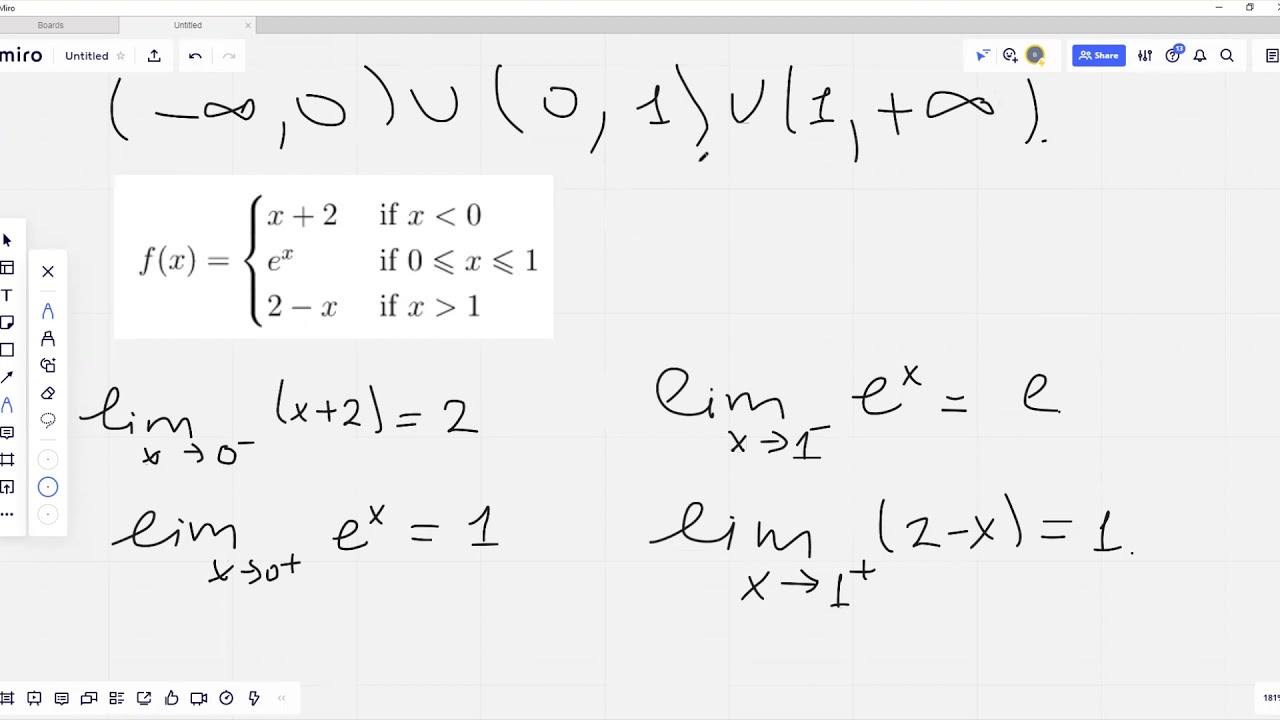 Miro
Boards Untitled
miro Untitled Share 13
(-∞, 0) ∪ (0, 1) ∪ (1, +∞).
f(x) = { x + 2 if x < 0
e^x if 0 ⩽ x ⩽ 1
2 − x if x > 1
lim x→0⁻ (x+2) = 2
lim x→1⁻ e^x = e
lim x→0⁺ e^x = 1
lim x→1⁺ (2-x) = 1.
181%